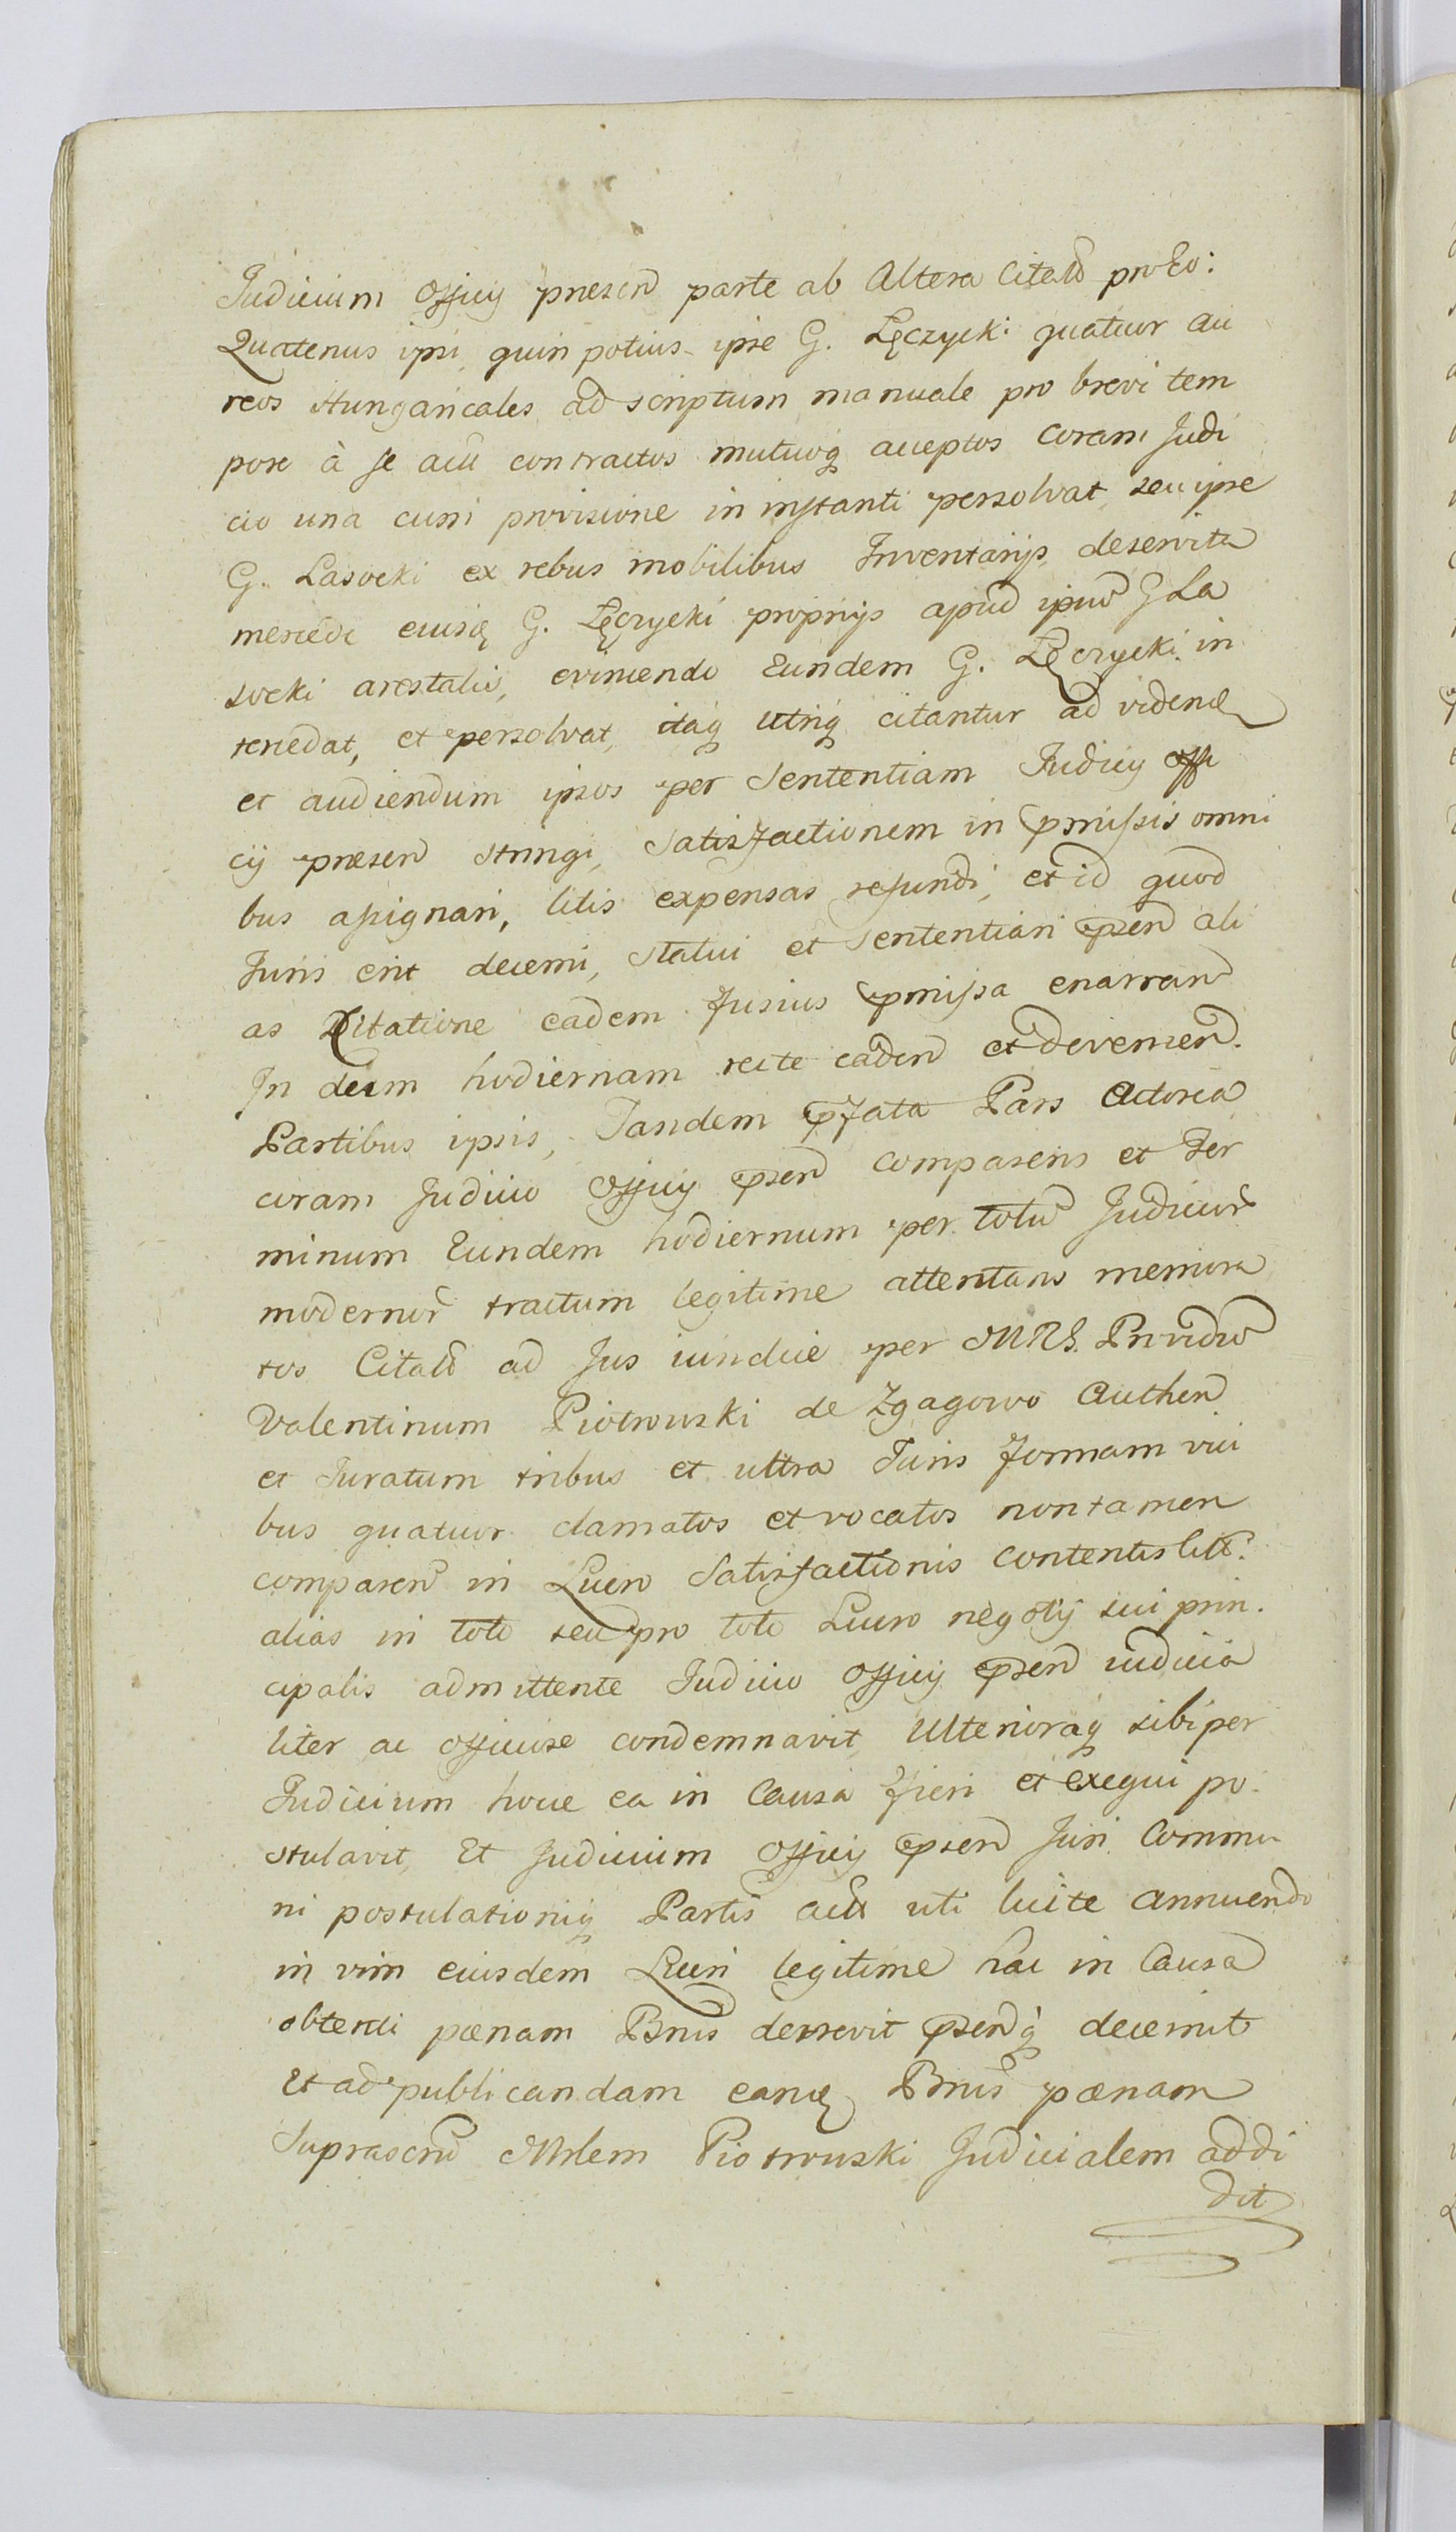 Judicium Officij præsen parte ab Altera Citatõ pro Eo:
Quatenus ipsi, quin potius ipse G. Łęczycki quatuor au
reos Hungaricales ad scriptum manuale pro brevi tem
pore à se contractos mutuoq acceptos coram Judi
cio una cum provisione in instanti persolvat, seu ipse
G. Lasocki ex rebus mobilibus Inventarijs deservita
mercede eiusq G. Łęczycki proprijs apud ipsũ G La
socki arestatis, evincendo Eundem G. Łęczycki in
tercedat, et persolvat, itaq utriq citantur ad videnđ
et audiendum ipsos per Sententiam Judicij offi
cij præsen stringi, Satisfactionem in pmissis omni
bus assignari, litis expensas refundi, et id quod
Juris erit decerni, statui et Sententiari psen ali
as Citatione eadem fusius pmissa enarran
In diem hodiernam recte caden et devenien.
Partibus ipsis, Tandem pfata Pars Actorea
coram Judicio Officij psen comparens et Ter
minum Eundem hodiernum per totũ Judicior
modernor tractum legitime attentans memora
tos Citatõ ad Jus iuridice per MRS. Providũ
Valentinum Piotrowski de Zgagowo Authen
et Juratum tribus et ultra Juris formam vici
bus quatuor clamatos et vocatos non tamen
comparen in Lucro Satisfactionis contentis litt:
alias in toto seu pro toto Lucro negotij sui prin.
cipalis admittente Judicio Officij psen iudicia
liter ac officiose condemnavit, Ulterioraq sibi per
Judicium hocce ea in Causa fieri et exequi po.
stulavit, Et Judicium Officij psen Juri Commu
ni postulationiq Partis uti licite annuendo
in vim eiusdem Lucri legitime hac in Causa
obtenti pœnam Bnis decrevit psenq decernit
Et ad publicandam eanđ Bnis pœnam
Suprascrũ Mrlem Piotrowski Judicialem addi
dit